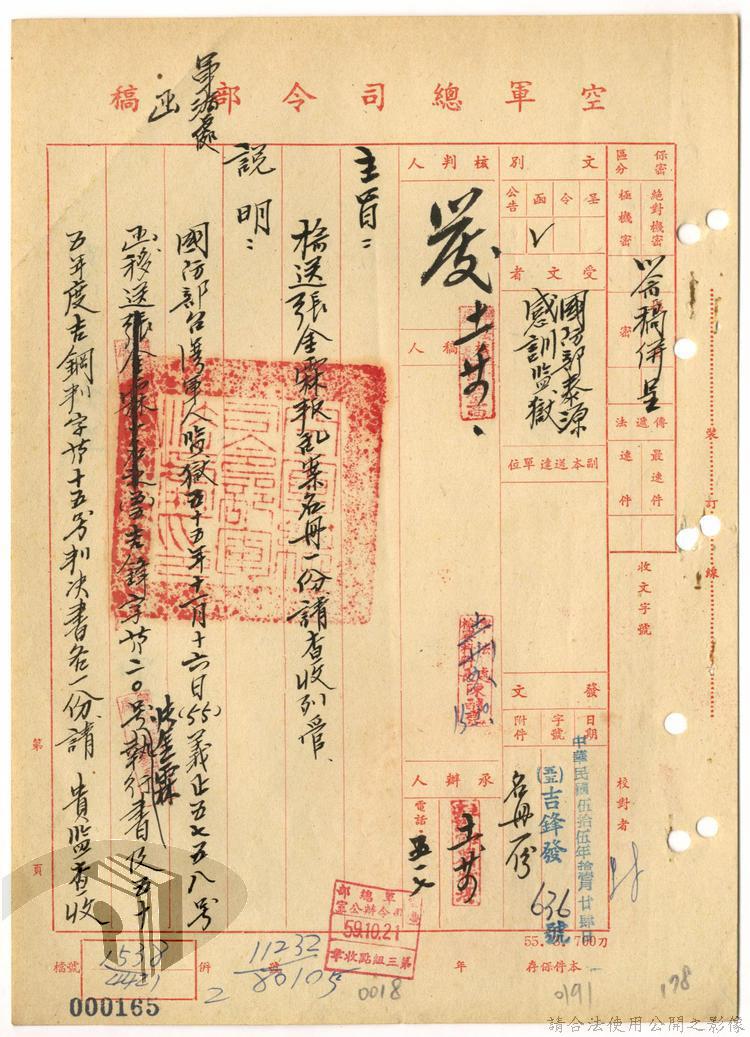 空軍總司令部 稿
函
軍法處
保密區分
絕對機密
極機密
密
以箋稿併呈
傳遞法
最速件
速件
收文字號
校對者
裝 訂 線
文別
呈
令
函
公告
V
受文者
國防部泰源
感訓監獄
副本送達單位
發文
日期
字號
附件
中華民國伍拾伍年拾壹月廿肆日
(55)吉鋒發 636 號
名冊一份
核判人
發
稿人
承辦人
電話
主旨：
檢送張金霖叛亂案名冊一份請查收列管、
說明：
國防部台灣軍人監獄五十五年十一月十六日(55)義正五七五八號
函移送張金霖
吉鋒字第二〇號執行書及五十
五年度吉鋼判字第十五號判決書各一份請 貴監查收
張金霖
第 頁
軍總部
司令辦公室
59.10.21
第三組點收章
檔號
1538
4421
併 號
11232
80105
2
年
本件保存
55. 700刀
0018
0191
178
000165
請合法使用公開之影像